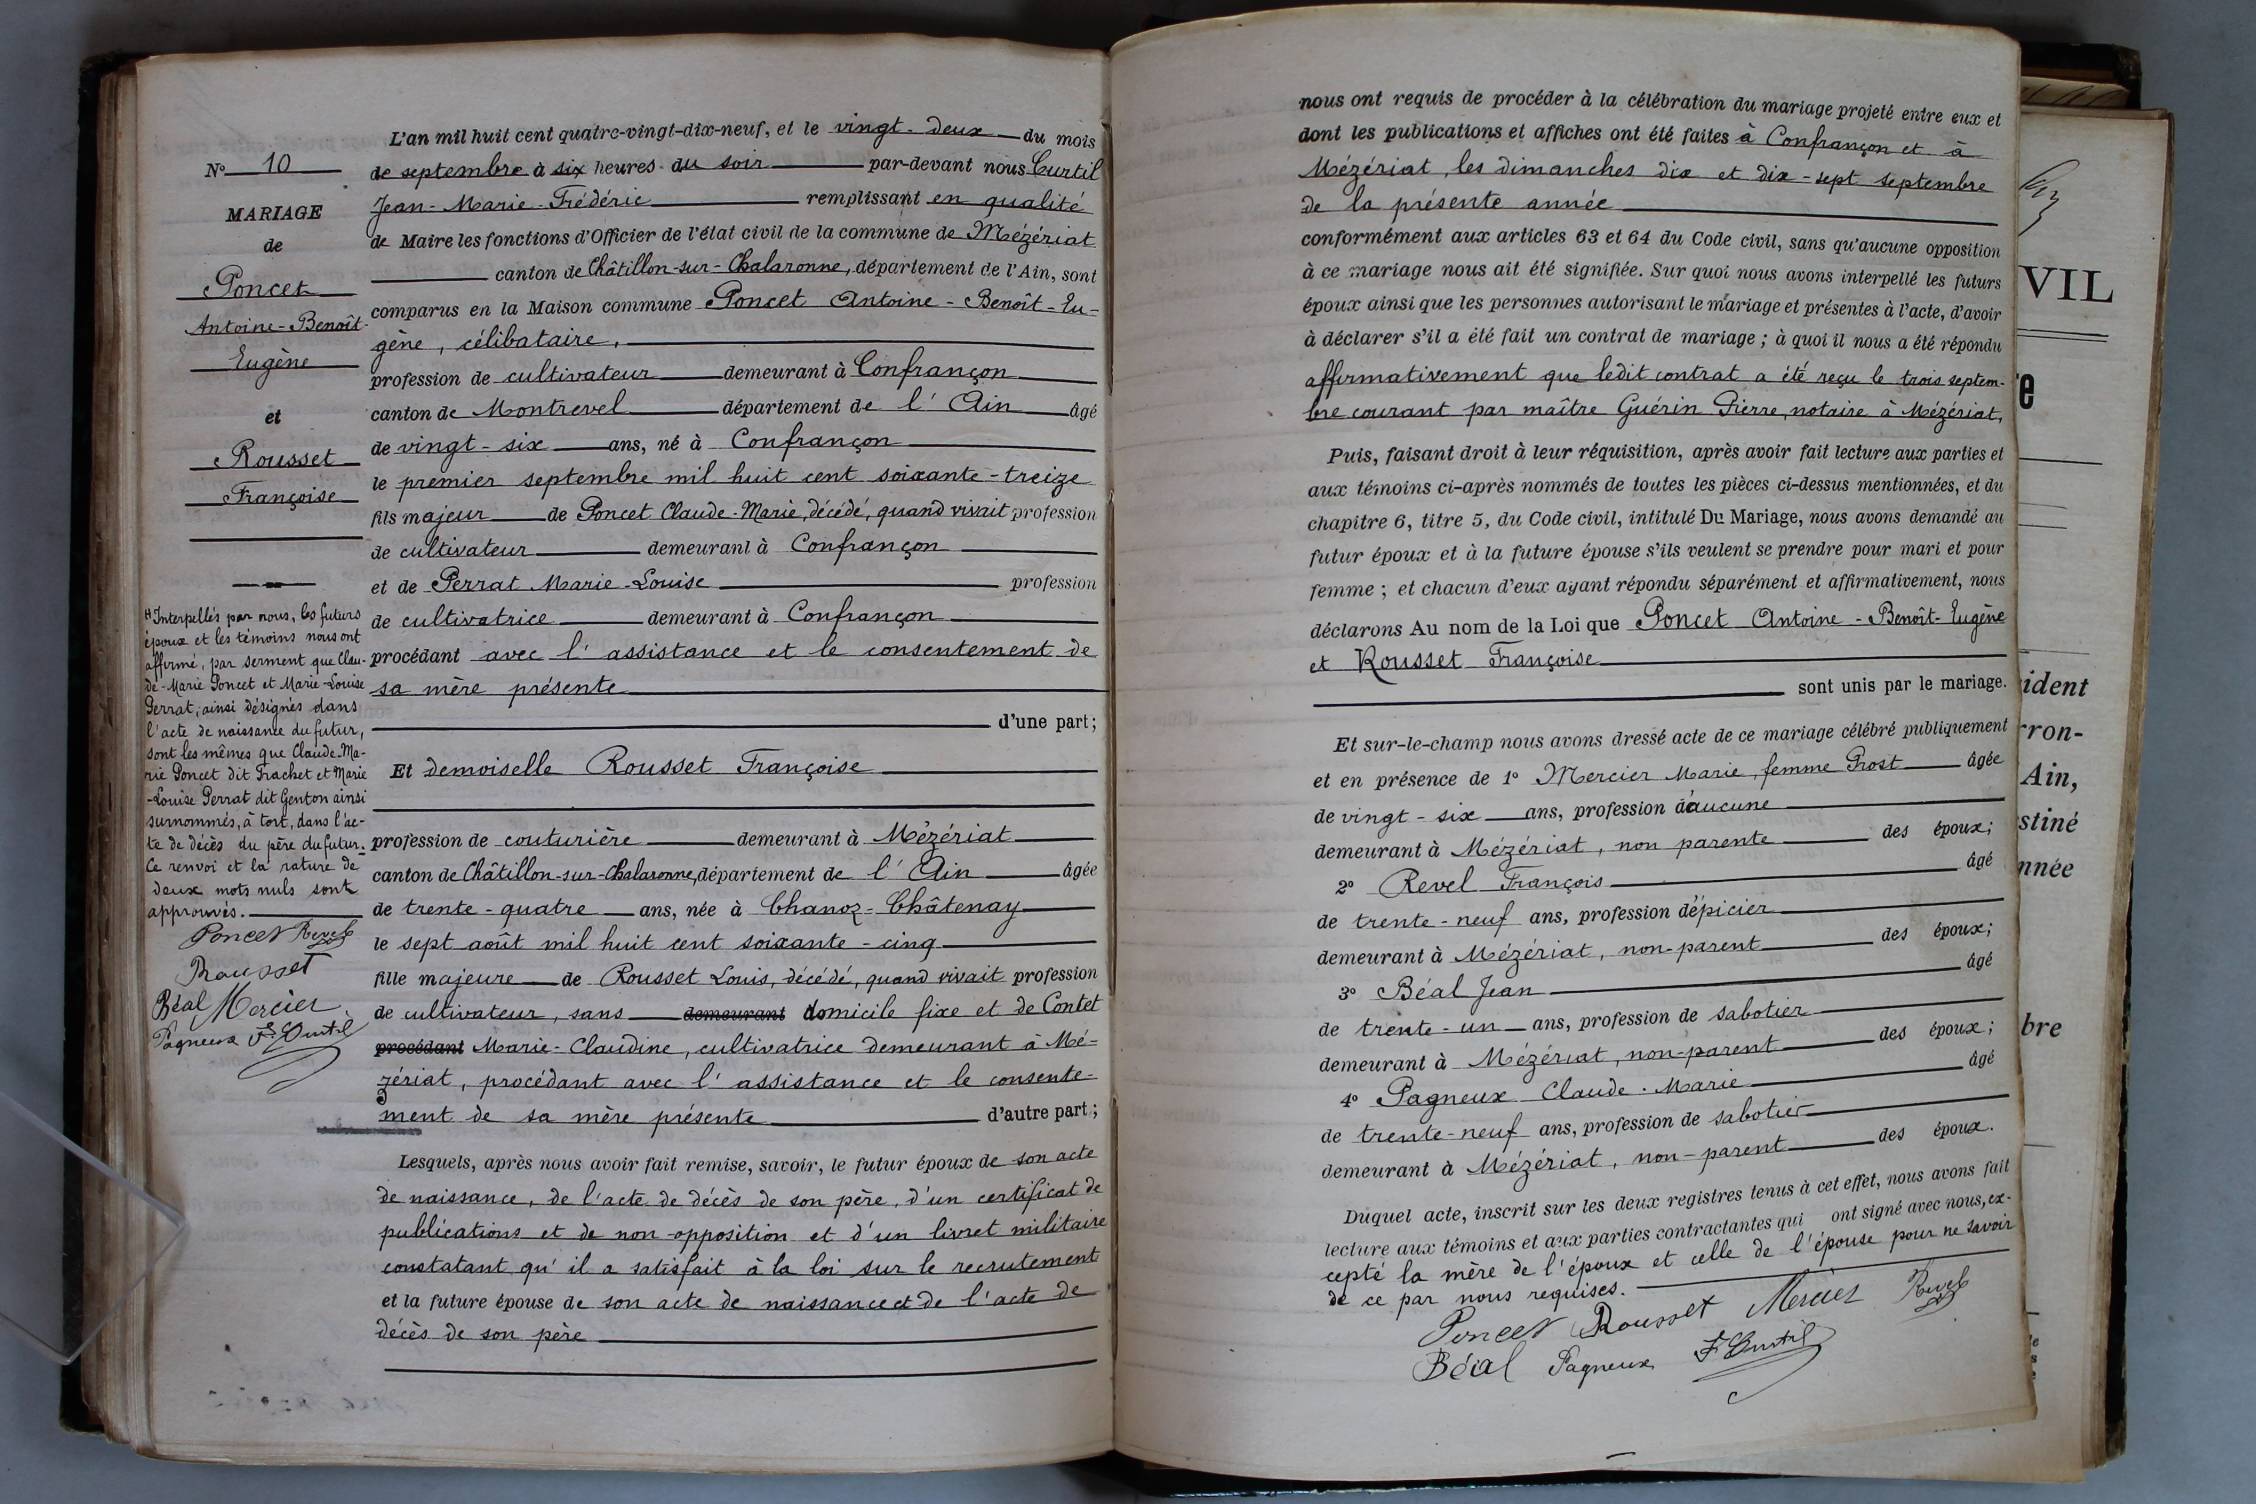 N° 10
MARIAGE
de
Poncet
Antoine-Benoît-
Eugène
et
Rousset
Françoise
Interpellés par nous, les futurs
époux et les témoins nous ont
affirmé, par serment que Clau-
de-Marie Poncet et Marie-Louise
Perrat, ainsi désignés dans
l'acte de naissance du futur,
sont les mêmes que Claude-Ma-
rie Poncet dit Frachet et Marie
-Louise Perrat dit Genton ainsi
surnommés, à tort, dans l'ac-
te de décès du père du futur.
Ce renvoi et la rature de
deux mots nuls sont
approuvés.
Poncet Revel
Rousset
Béal Mercier
Pagneux F. Curtil
L'an mil huit cent quatre-vingt-dix-neuf, et le vingt-deux du mois
de septembre à six heures du soir par-devant nous Curtil
Jean-Marie-Frédéric remplissant en qualité
de Maire les fonctions d'Officier de l'état civil de la commune de Mézériat
canton de Châtillon-sur-Chalaronne, département de l'Ain, sont
comparus en la Maison commune Poncet Antoine-Benoît-Eu-
gène, célibataire,
profession de cultivateur demeurant à Confrançon
canton de Montrevel département de l'Ain âgé
de vingt-six ans, né à Confrançon
le premier septembre mil huit cent soixante-treize
fils majeur de Poncet Claude-Marie, décédé, quand vivait profession
de cultivateur demeurant à Confrançon
et de Perrat Marie-Louise profession
de cultivatrice demeurant à Confrançon
procédant avec l'assistance et le consentement de
sa mère présente
d'une part;
Et demoiselle Rousset Françoise
profession de couturière demeurant à Mézériat
canton de Châtillon-sur-Chalaronne, département de l'Ain âgée
de trente-quatre ans, née à Chanoz-Châtenay
le sept août mil huit cent soixante-cinq
fille majeure de Rousset Louis, décédé, quand vivait profession
de cultivateur, sans demeurant domicile fixe et de Contet
procédant Marie-Claudine, cultivatrice demeurant à Mé-
zériat, procédant avec l'assistance et le consente-
ment de sa mère présente d'autre part;
Lesquels, après nous avoir fait remise, savoir, le futur époux de son acte
de naissance, de l'acte de décès de son père, d'un certificat de
publications et de non-opposition et d'un livret militaire
constatant qu'il a satisfait à la loi sur le recrutement
et la future épouse de son acte de naissance et de l'acte de
décès de son père
nous ont requis de procéder à la célébration du mariage projeté entre eux et
dont les publications et affiches ont été faites à Confrançon et à
Mézériat, les dimanches dix et dix-sept septembre
de la présente année
conformément aux articles 63 et 64 du Code civil, sans qu'aucune opposition
à ce mariage nous ait été signifiée. Sur quoi nous avons interpellé les futurs
époux ainsi que les personnes autorisant le mariage et présentes à l'acte, d'avoir
à déclarer s'il a été fait un contrat de mariage; à quoi il nous a été répondu
affirmativement que ledit contrat a été reçu le trois septem-
bre courant par maître Guérin Pierre, notaire à Mézériat,
Puis, faisant droit à leur réquisition, après avoir fait lecture aux parties et
aux témoins ci-après nommés de toutes les pièces ci-dessus mentionnées, et du
chapitre 6, titre 5, du Code civil, intitulé Du Mariage, nous avons demandé au
futur époux et à la future épouse s'ils veulent se prendre pour mari et pour
femme; et chacun d'eux ayant répondu séparément et affirmativement, nous
déclarons Au nom de la Loi que Poncet Antoine-Benoît-Eugène
et Rousset Françoise
sont unis par le mariage.
Et sur-le-champ nous avons dressé acte de ce mariage célébré publiquement
et en présence de 1° Mercier Marie, femme Prost âgée
de vingt-six ans, profession d'aucune
demeurant à Mézériat, non parente des époux;
2° Revel François âgé
de trente-neuf ans, profession d'épicier
demeurant à Mézériat, non-parent des époux;
3° Béal Jean âgé
de trente-un ans, profession de sabotier
demeurant à Mézériat, non-parent des époux;
4° Pagneux Claude-Marie âgé
de trente-neuf ans, profession de sabotier
demeurant à Mézériat, non-parent des époux.
Duquel acte, inscrit sur les deux registres tenus à cet effet, nous avons fait
lecture aux témoins et aux parties contractantes qui ont signé avec nous, ex-
cepté la mère de l'époux et celle de l'épouse pour ne savoir
de ce par nous requises.
Poncet Rousset Mercier Revel
Béal Pagneux F. Curtil
VIL
ident
rron-
Ain,
stiné
nnée
bre